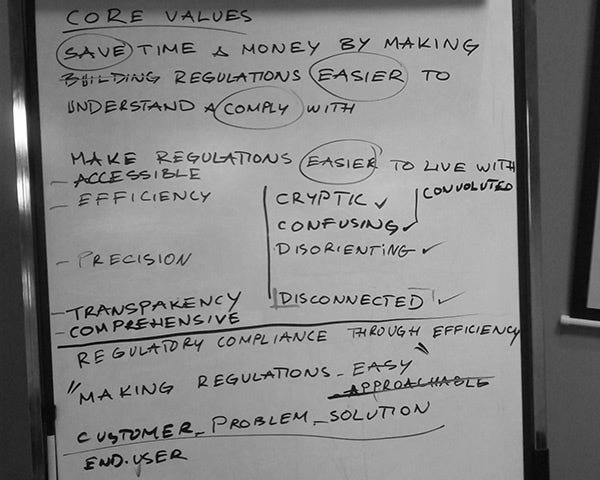 CORE VALUES
SAVE TIME & MONEY BY MAKING
BUILDING REGULATIONS EASIER TO
UNDERSTAND & COMPLY WITH
MAKE REGULATIONS EASIER TO LIVE WITH
- ACCESSIBLE
- EFFICIENCY CRYPTIC ✓ CONVOLUTED
CONFUSING ✓
- PRECISION DISORIENTING ✓
- TRANSPARENCY DISCONNECTED ✓
- COMPREHENSIVE
REGULATORY COMPLIANCE THROUGH EFFICIENCY
"MAKING REGULATIONS - EASY"
APPROACHABLE
CUSTOMER - PROBLEM - SOLUTION
END.USER